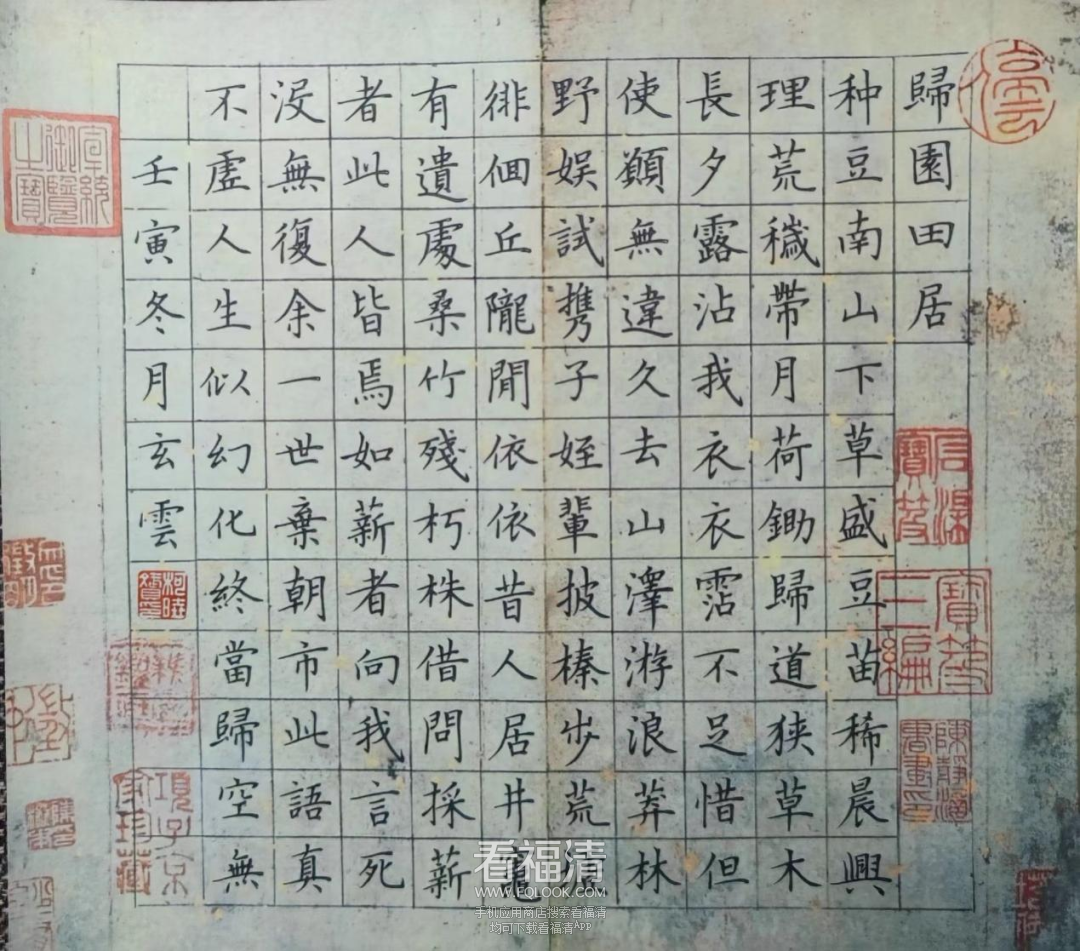 歸園田居
种豆南山下草盛豆苗稀晨興
理荒穢帶月荷鋤歸道狭草木
長夕露沾我衣衣霑不足惜但
使願無違久去山澤游浪莽林
野娱試携子姪輩披榛步荒墟
徘徊丘隴間依依昔人居井竈
有遺處桑竹殘朽株借問採薪
者此人皆焉如薪者向我言死
没無復余一世棄朝市此語真
不虛人生似幻化終當歸空無
壬寅冬月玄雲
宣統御覽之寶
項子京家珍藏
寶笈三編
看福清
WWW.FQLOOK.COM
手机应用商店搜索看福清
均可下载看福清App